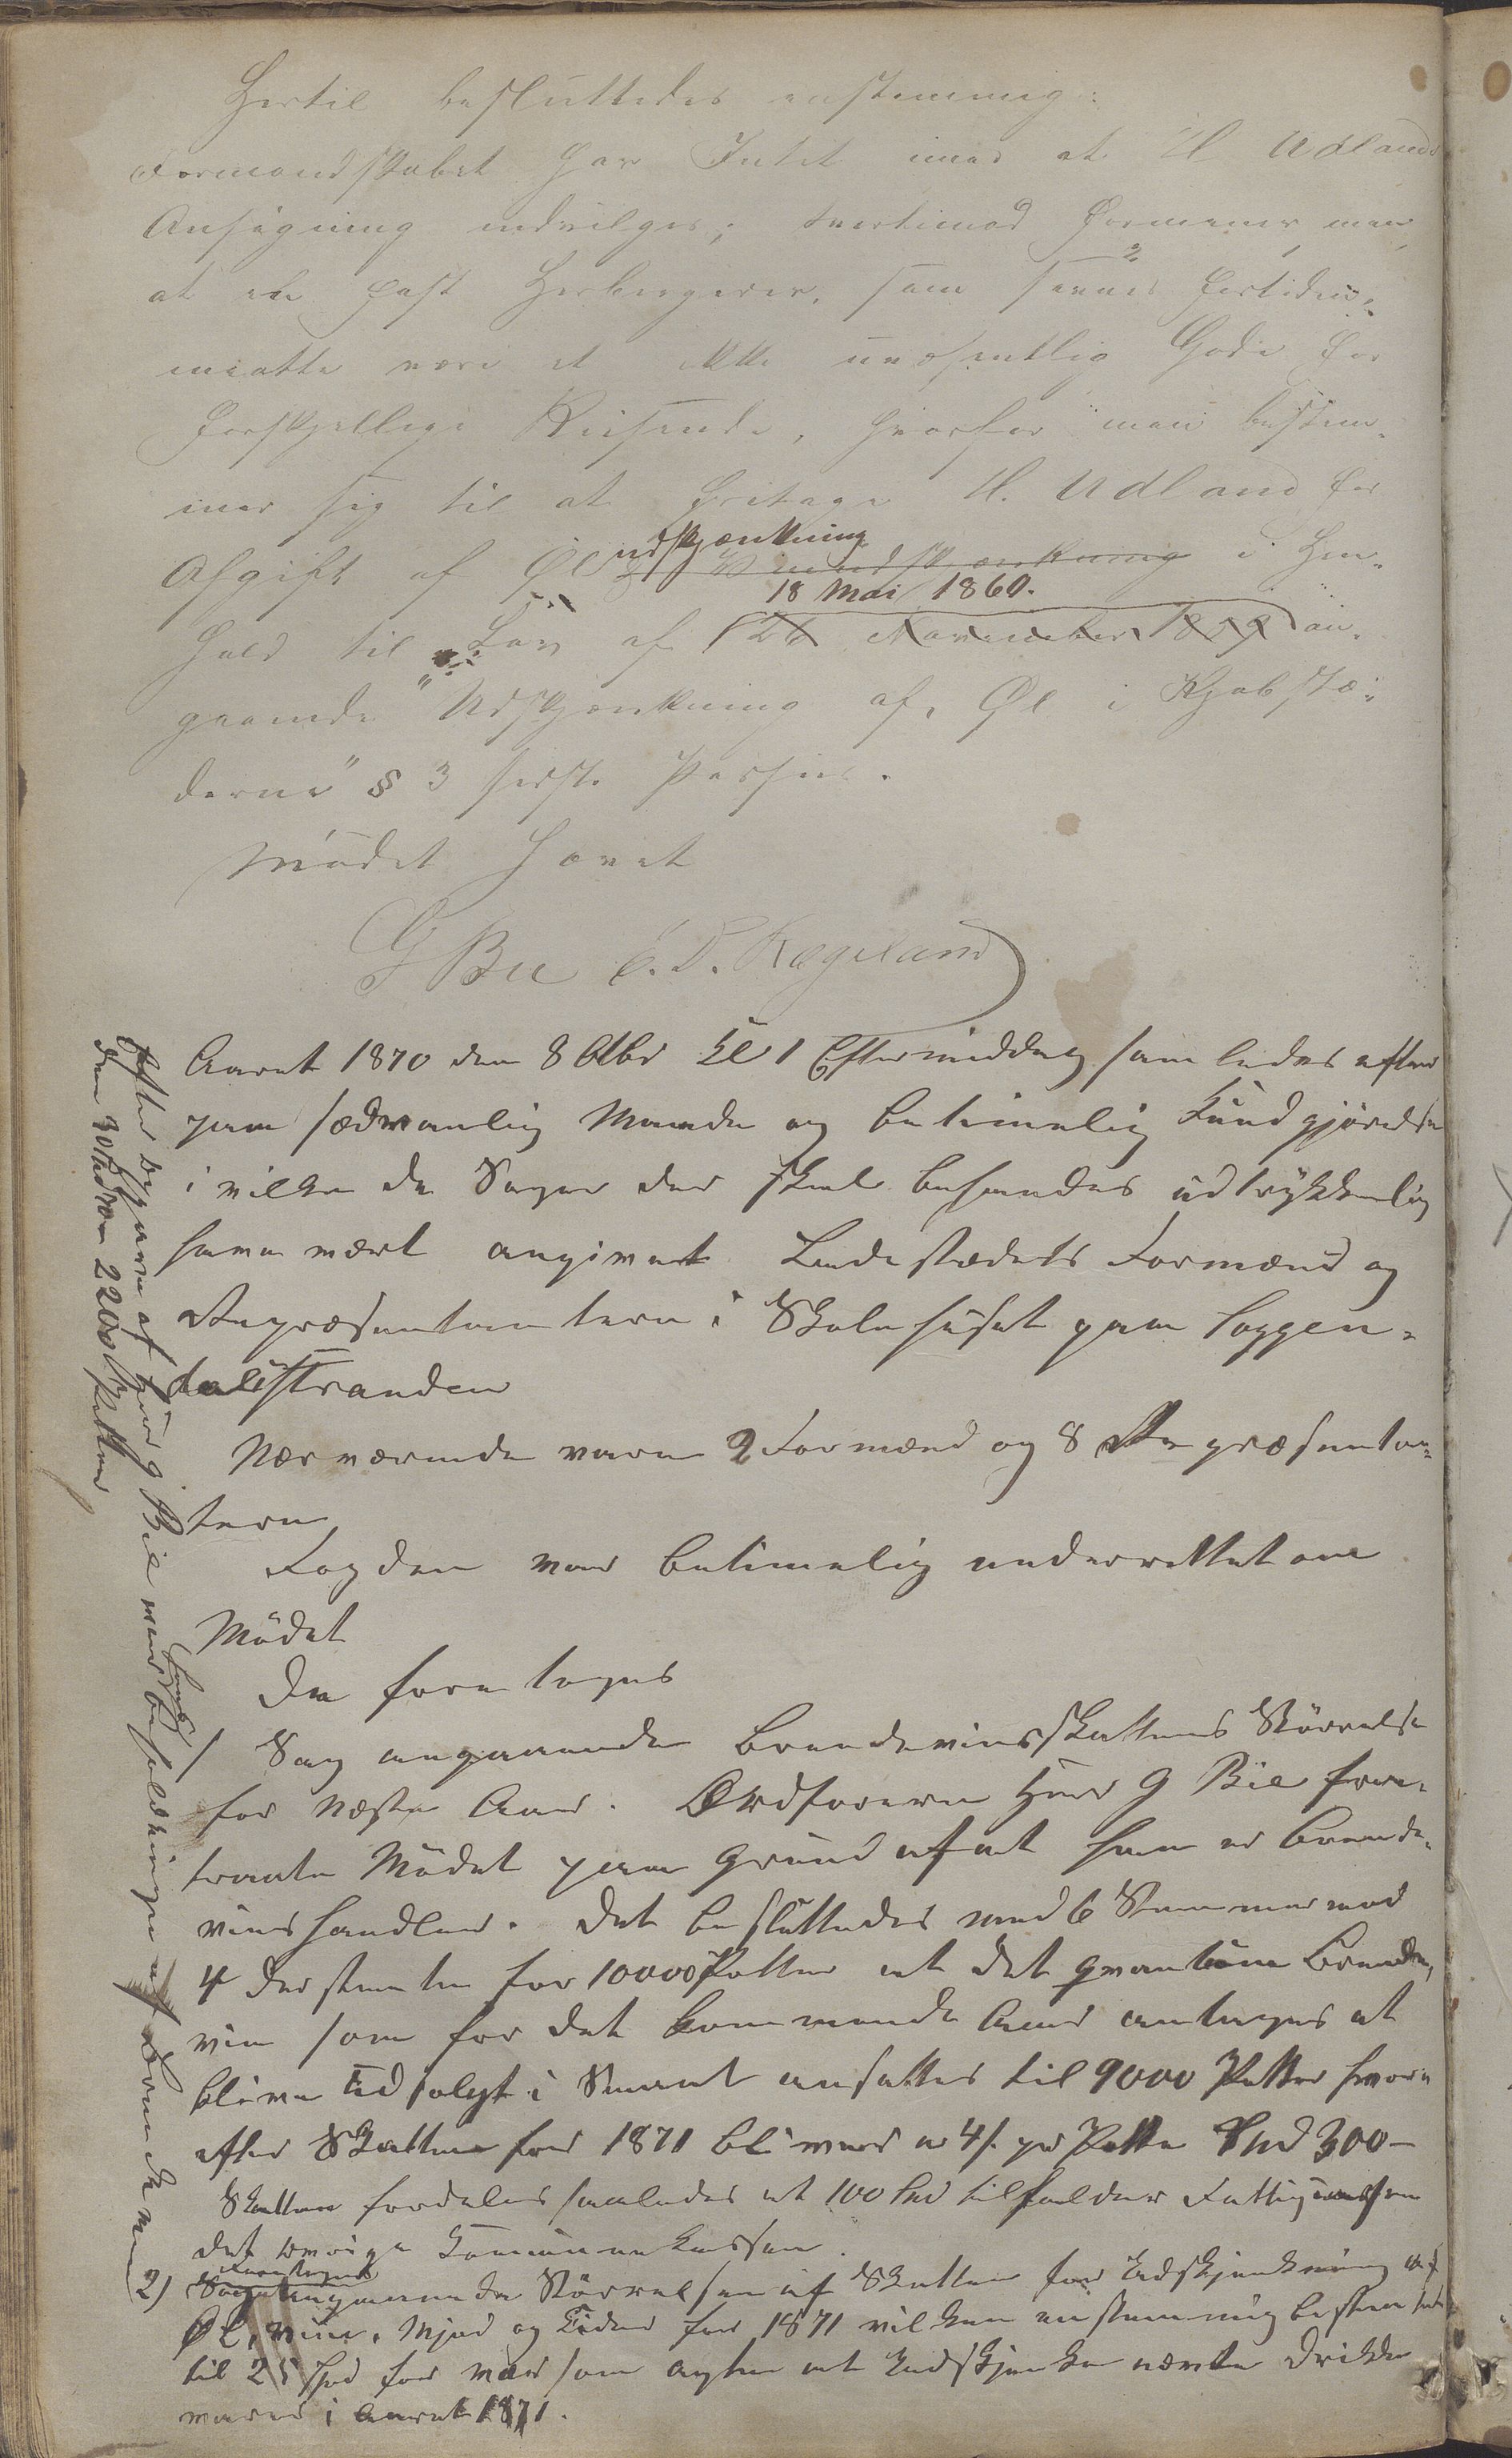 Hertil besluttedes enstemmig:
Formandskabet har Intet imod at H. Udlands
Ansøgning indvilges; tvertimod formener man,
at en fast Herbergerer, som savnes fortiden,
maatte være et ikke uvæsentlig Gode for
forskjellige Reisende, hvorfor man bestem-
mer sig til at fritage H. Udland for
udskjænkning
Afgift af Øl i Hen-
18 Mai 1860.
hold til Lov af 26 November 1859 an-
gaaende "Udskjænkning af Øl i Kjøbstæ-
derne" § 3 sidste Passus.
Mødet hævet
G Bie E. D. Rægeland
Aaret 1870 den 8 Otbr Kl 1 Eftermiddag samledes efter
paa sædvanlig Maade og betimelig Kundgjørelse
i vilken de Sager der skal behandles udtrykkelig
have vært angivet Ladestædets Formænd og
Repræsentantern i Skolehuset paa Soggen-
dalsstranden
Nærværende vare 2 Formænd og 8 Repræsentan-
tern
Fogden var betimelig underrettet om
Mødet
Da foretoges
1 Sag angaaende Brændevinsskattens Størrelse
for næste Aar. Ordføreren Herr G Bie fra-
traatte Mødet paa Grund af at han er Brænde-
vinshandler. Det besluttedes med 6 Stemmer mod
4 der stemte for 10000 Potter at det qvantum Brænde-
vin som for det kommende Aar antages at
blive udsolgt i Smaat ansættes til 9000 Potter hvor-
efter Skatten for 1871 bliver a 4 s. pr Potte Spd 300 –
Skatten fordeles saaledes at 100 Spd tilfalder Fattigvæsen
det øvrige Kommunekassen.
Foretoges
2) Sag angaaende Størrelsen af Skatten for Udskjænkning af
Øl, Viin, Mjød og Sider for 1871 vilken enstemmig bestemtes
til 25 Spd for vær som agter at Udskjenke nævnte Drikke
varer i Aaret 1871.
Efter begjæring af Herr G Bie var hans Beholdning af Brændevin
den 30te 2200 Potter